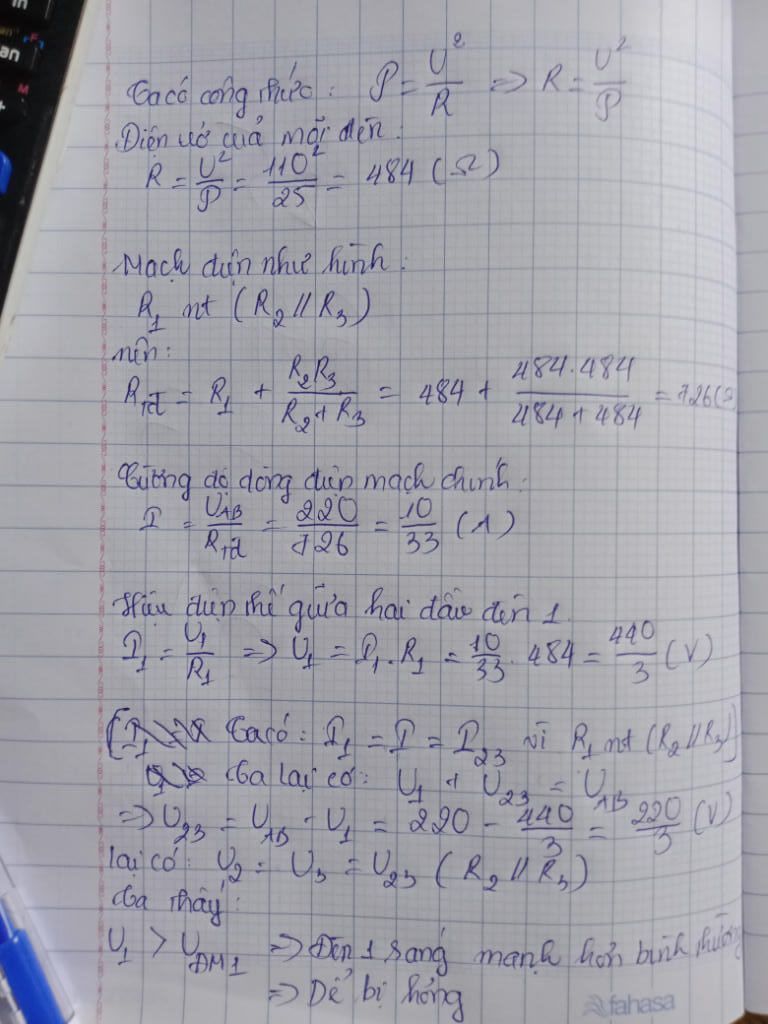 Ta có công thức: P = U²/R => R = U²/P
Điện trở của mỗi đèn:
R = U²/P = 110²/25 = 484 (Ω)
Mạch điện như hình:
R₁ nt (R₂ // R₃)
nên:
R_tđ = R₁ + R₂R₃/(R₂ + R₃) = 484 + 484.484/(484 + 484) = 726 (Ω)
Cường độ dòng điện mạch chính:
I = U_AB/R_tđ = 220/726 = 10/33 (A)
Hiệu điện thế giữa hai đầu đèn 1.
I₁ = U₁/R₁ => U₁ = I₁.R₁ = 10/33 . 484 = 440/3 (V)
Ta có: I₁ = I = I₂₃ vì R₁ nt (R₂ // R₃)
Ta lại có: U₁ + U₂₃ = U_AB
=> U₂₃ = U_AB - U₁ = 220 - 440/3 = 220/3 (V)
lại có: U₂ = U₃ = U₂₃ (R₂ // R₃)
Ta thấy:
U₁ > U_ĐM1 => Đèn 1 sáng mạnh hơn bình thường
=> Dể bị hỏng
fahasa